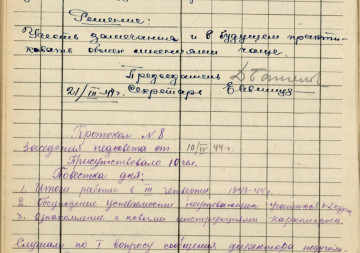 Решение:
Учесть замечания и в будущем практи-
ковать обмен мнениями чаще.
Председатель
21/III 44 г. Секретарь
Протокол № 8
Заседания педсовета от 10/IV 44 г.
Присутствовало 10 чел.
Повестка дня:
1. Итоги работы в III четверти 1943-44 г.
2. Обсуждение успеваемости неуспевающих учащихся
3. Ознакомление с новыми инструкциями наркомпроса.
Слушали по I вопросу сообщения директора